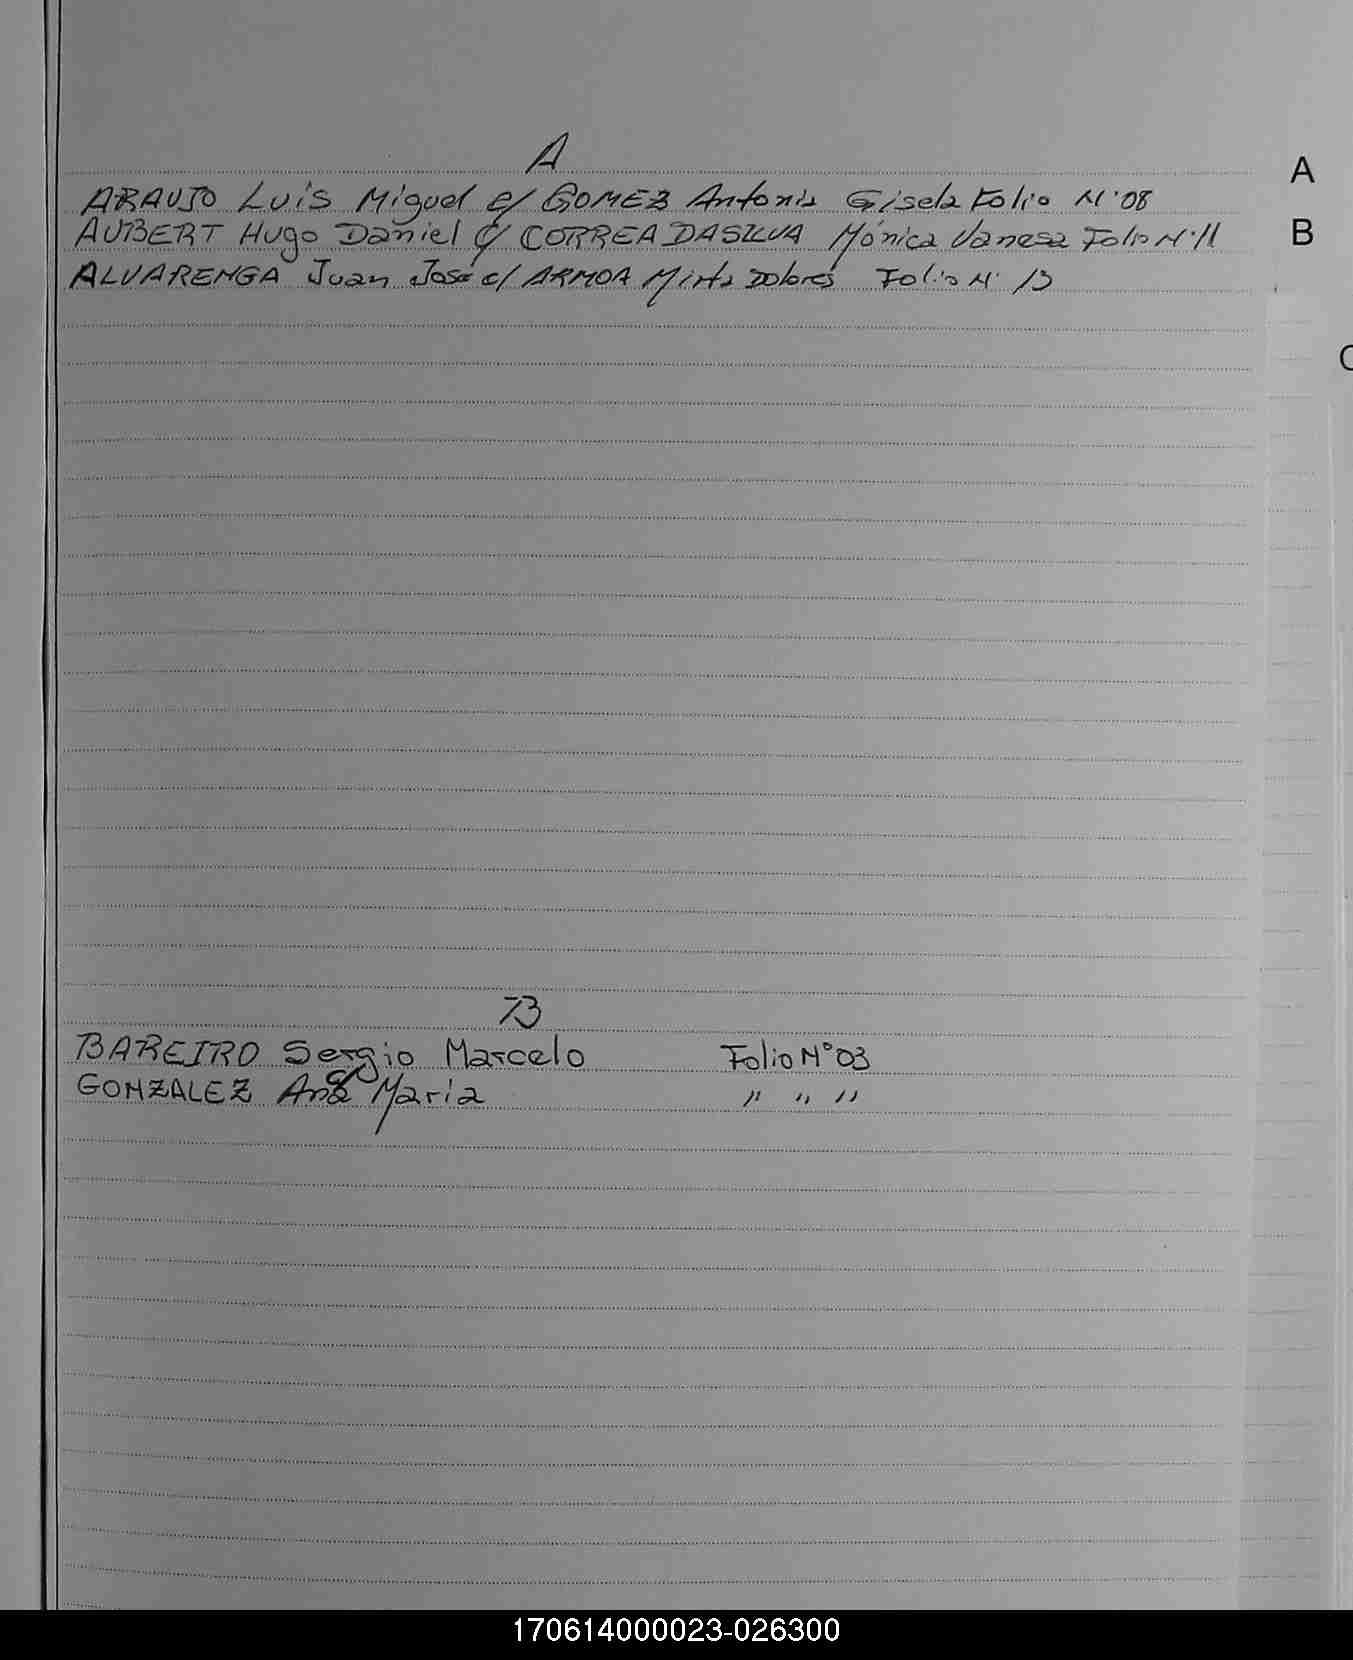 A
A
ARAUJO Luis Miguel c/ GOMEZ Antonia Gisela Folio N° 08
AUBERT Hugo Daniel c/ CORREA DASILVA Mónica Vanesa Folio N° 11
B
ALVARENGA Juan José c/ ARMOA Mirta Dolores Folio N° 13
C
B
BAREIRO Sergio Marcelo Folio N° 03
GONZALEZ Ana Maria " " "
170614000023-026300